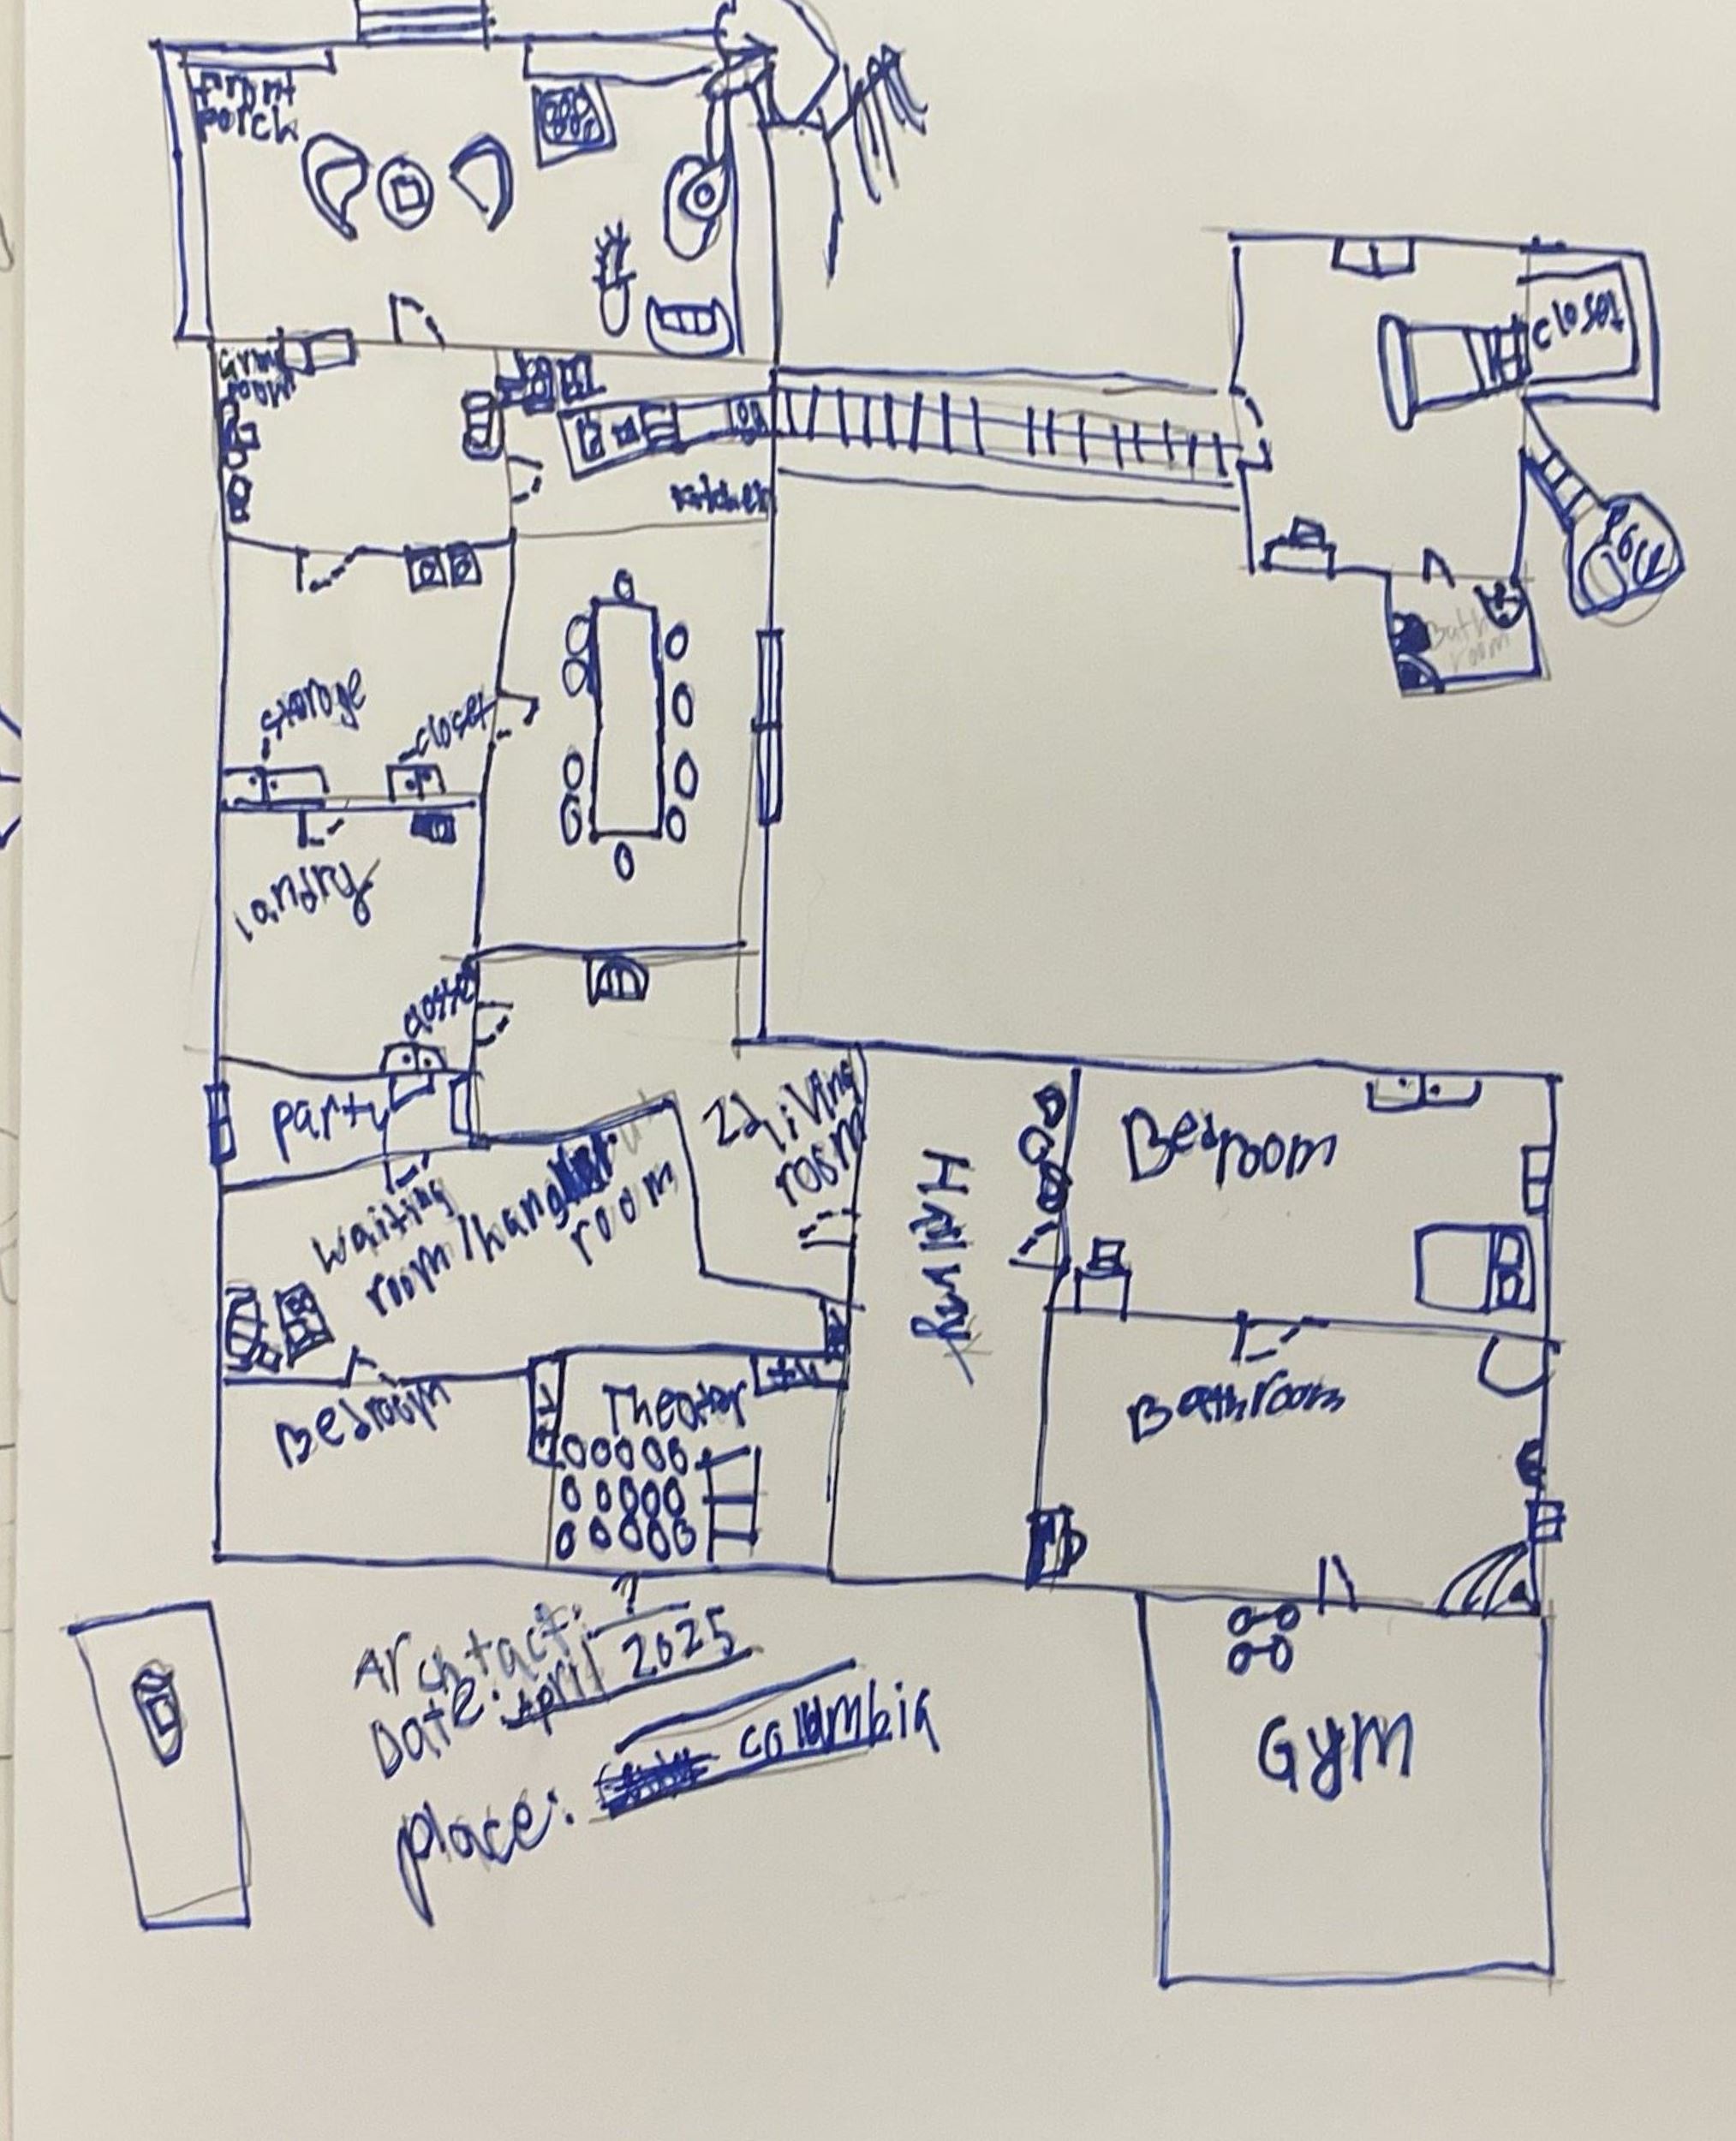 front
porch
room
closet
kitchen
Pool
Bath
room
storage
closet
landry
closet
party
2d living
room
Hallway
Bedroom
waiting
room/hang
room
Bedroom
Theater
Bathroom
Archtact: ?
Date: April 2025
place: columbia
Gym